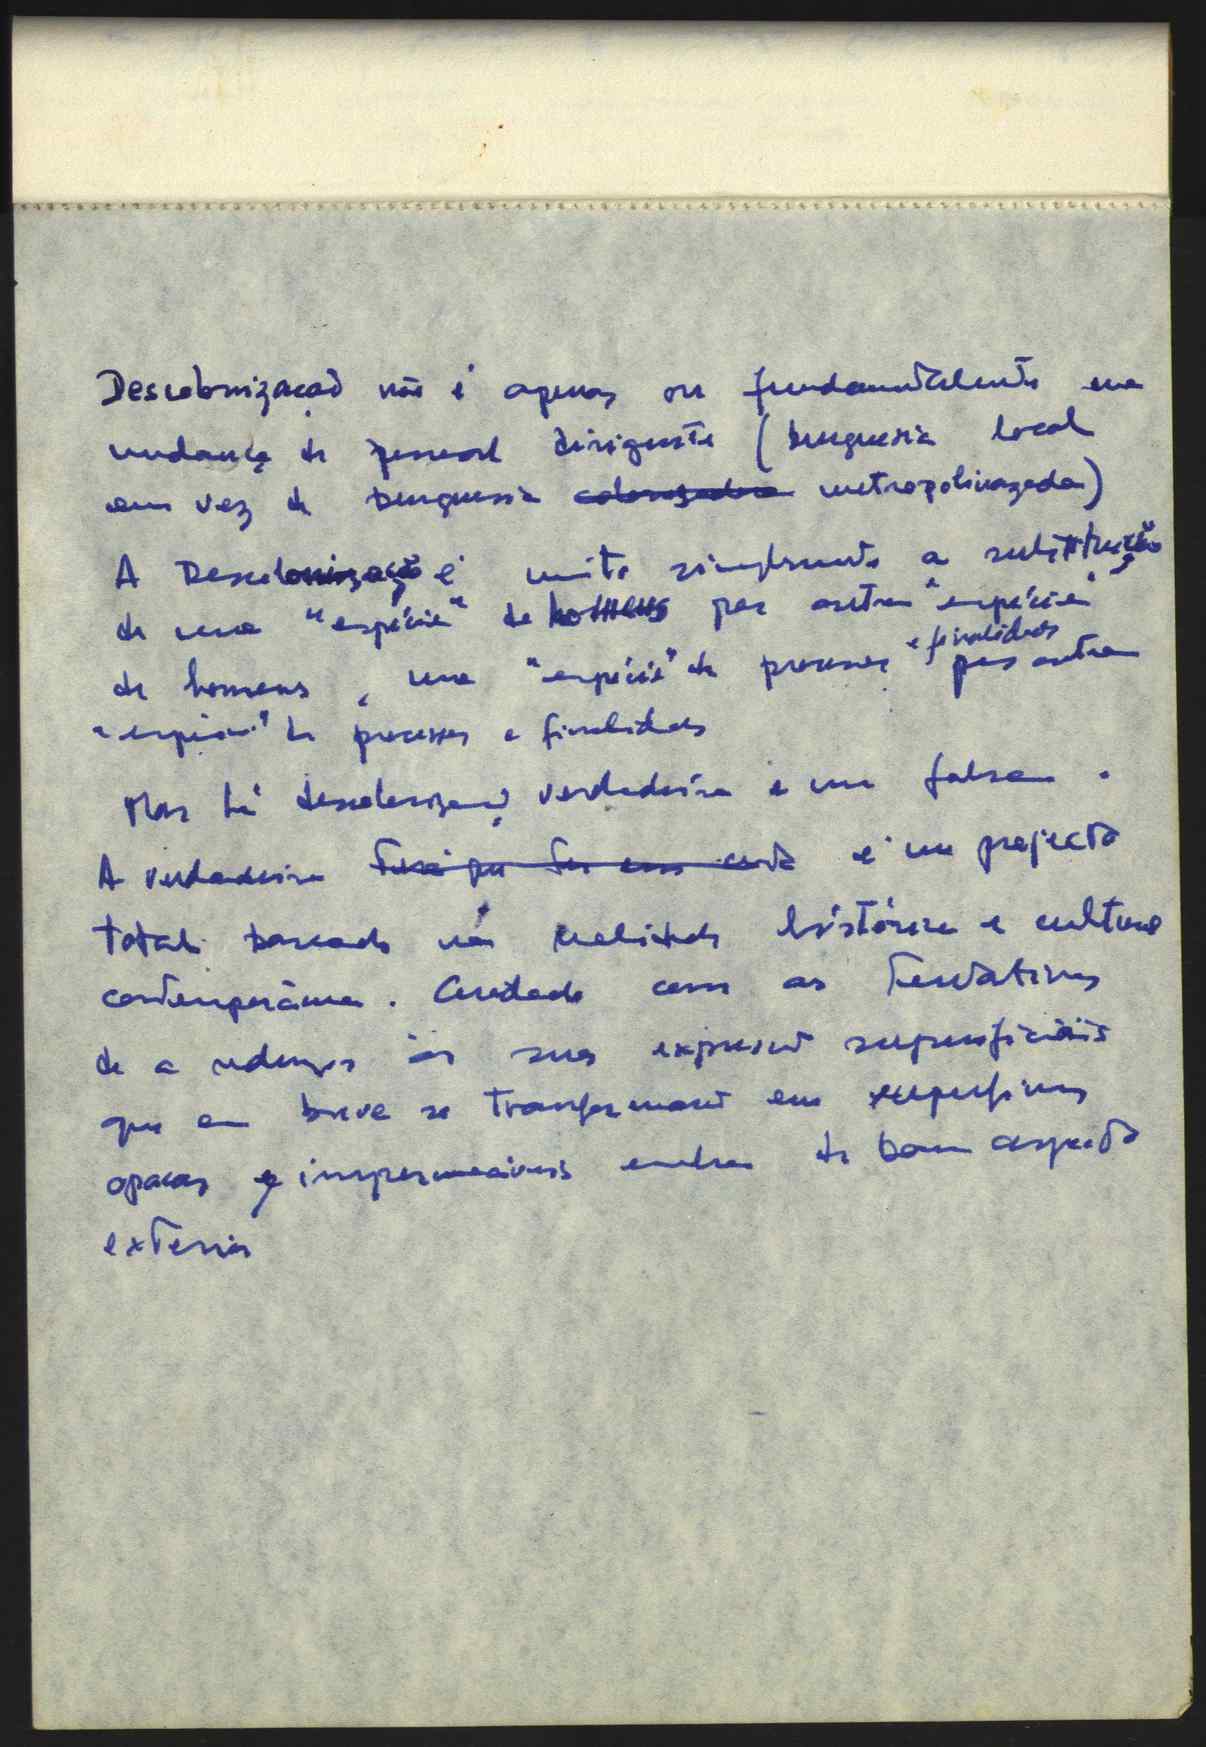 Descolonização não é apenas ou fundamentalmente uma
mudança de pessoal dirigente (burguesia local
em vez de burguesia colonizadora metropolinazada)
A Descolonização é muito simplesmente a substituição
de uma "espécie" de homens por outra "espécie"
de homens, uma "espécie" de processos e finalidades por outra
"espécie" de processos e finalidades
Mas há descolonização verdadeira e uma falsa.
A verdadeira é um projecto
total baseado na realidade histórica e cultural
contemporânea. Cuidado com as tentativas
de a reduzir às suas expressões superficiais
que em breve se transformam em superfícies
opacas e impermeáveis embora de bom aspecto
exterior